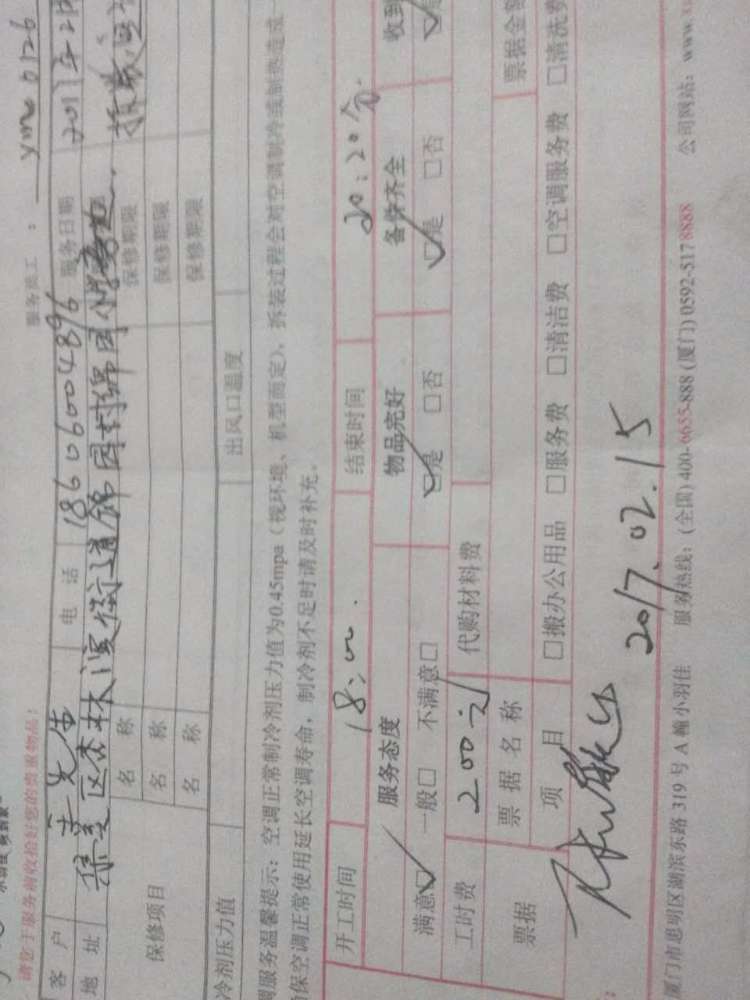 请您于服务前收拾好您的贵重物品：
服务员工： ymc 0126
客户 先生 电话 18606004896 服务日期 2017年2月
地址 集美区杏林 街道锦园村锦园
保修项目 名称 保修期限
名称 保修期限
名称 保修期限
冷剂压力值 出风口温度
调服务温馨提示：空调正常制冷剂压力值为0.45mpa（视环境、机型而定），拆装过程会对空调制冷或制热造成
保空调正常使用延长空调寿命，制冷剂不足时请及时补充。
开工时间 18:00 结束时间 20:20分
服务态度 物品完好 备件齐全 收到
满意☑ 一般□ 不满意□ ☑是 □否 ☑是 □否
工时费 200元 代购材料费
票据 票据名称 票据金额
项目 □搬办公用品 □服务费 □清洁费 □空调服务费 □清洗费
2017.02.15
厦门市思明区湖滨东路319号A幢小羽佳 服务热线：(全国) 400-6655-888 (厦门) 0592-5178888 公司网站：www.